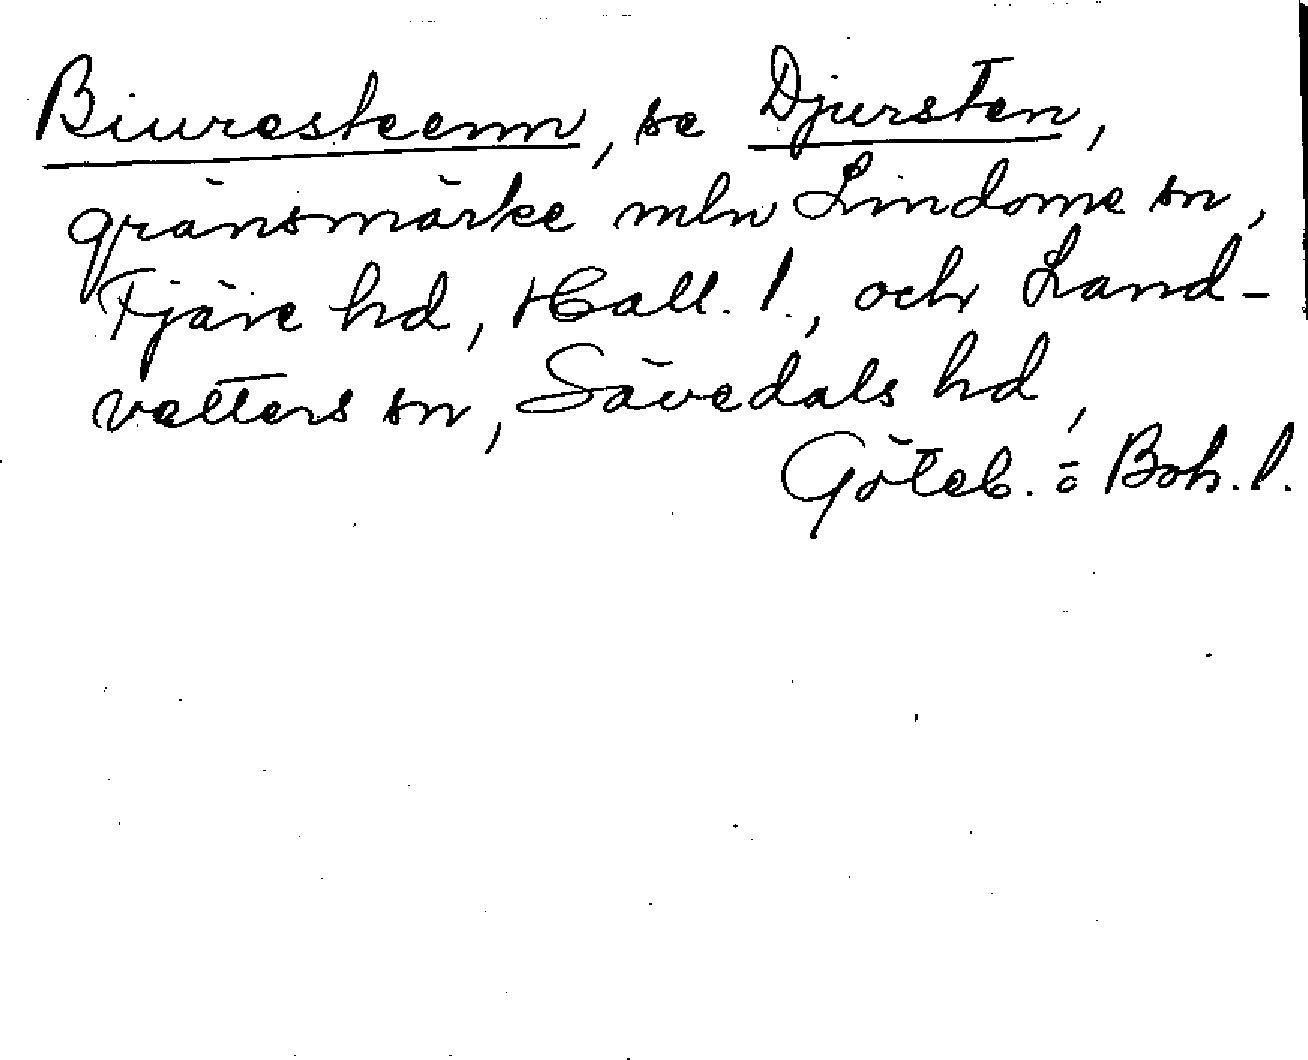 Biuresteenn, se Djursten,
gränsmärke mln Lindome sn,
Fjäre hd, Hall. l., och Land-
vetters sn, Sävedals hd,
Göteb. o Boh. l.